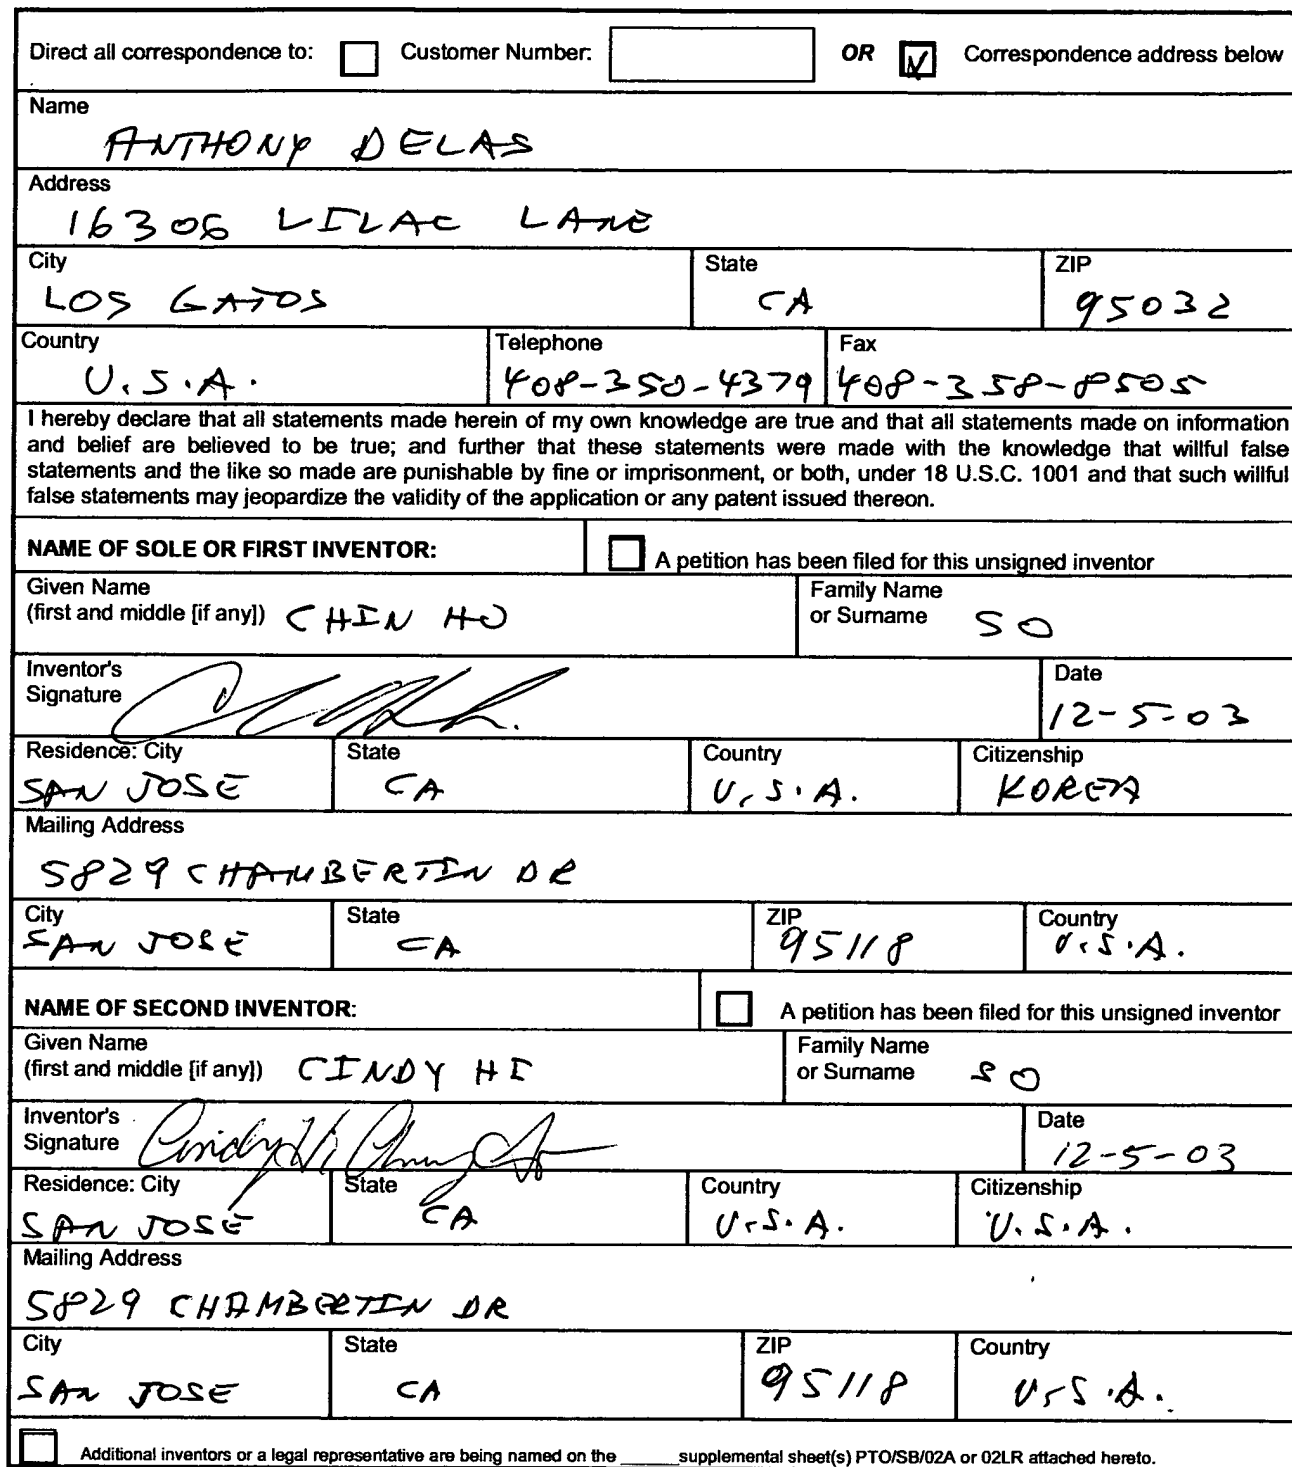 Direct all correspondence to: Customer Number: OR Correspondence address below
Name
ANTHONY DELAS
Address
16306 LILAC LANE
City State ZIP
LOS GATOS CA 95032
Country Telephone Fax
U.S.A. 408-350-4379 408-358-8505
I hereby declare that all statements made herein of my own knowledge are true and that all statements made on information
and belief are believed to be true; and further that these statements were made with the knowledge that willful false
statements and the like so made are punishable by fine or imprisonment, or both, under 18 U.S.C. 1001 and that such willful
false statements may jeopardize the validity of the application or any patent issued thereon.
NAME OF SOLE OR FIRST INVENTOR: A petition has been filed for this unsigned inventor
Given Name Family Name
(first and middle [if any]) CHIN HO or Surname SO
Inventor's Date
Signature 12-5-03
Residence: City State Country Citizenship
SAN JOSE CA U.S.A. KOREA
Mailing Address
5829 CHAMBERTIN DR
City State ZIP Country
SAN JOSE CA 95118 U.S.A.
NAME OF SECOND INVENTOR: A petition has been filed for this unsigned inventor
Given Name Family Name
(first and middle [if any]) CINDY HI or Surname SO
Inventor's Date
Signature Cindy Hi Chung So 12-5-03
Residence: City State Country Citizenship
SAN JOSE CA U.S.A. U.S.A.
Mailing Address
5829 CHAMBERTIN DR
City State ZIP Country
SAN JOSE CA 95118 U.S.A.
Additional inventors or a legal representative are being named on the ______supplemental sheet(s) PTO/SB/02A or 02LR attached hereto.